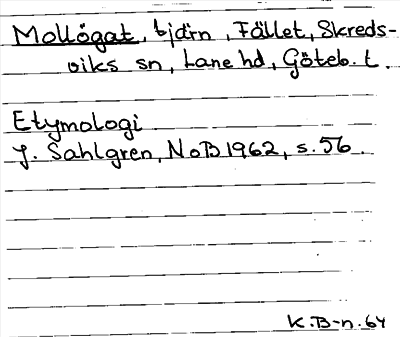 Mollögat, tjärn, Fället, Skreds-
viks sn, Lane hd, Göteb. l.
Etymologi
J. Sahlgren, NoB 1962, s. 56.
K.B-n. 64